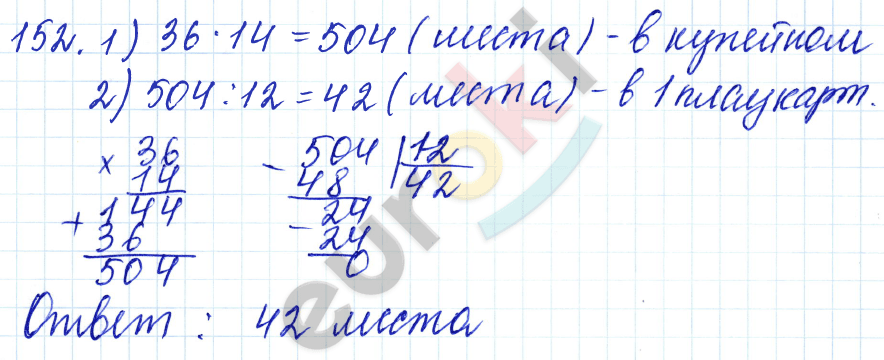 152. 1) 36 · 14 = 504 (места) - в купейном
2) 504 : 12 = 42 (места) - в 1 плацкарт.
× 36 - 504 | 12
14 48 42
+ 144 - 24
36 24
504 0
Ответ : 42 места
euroki